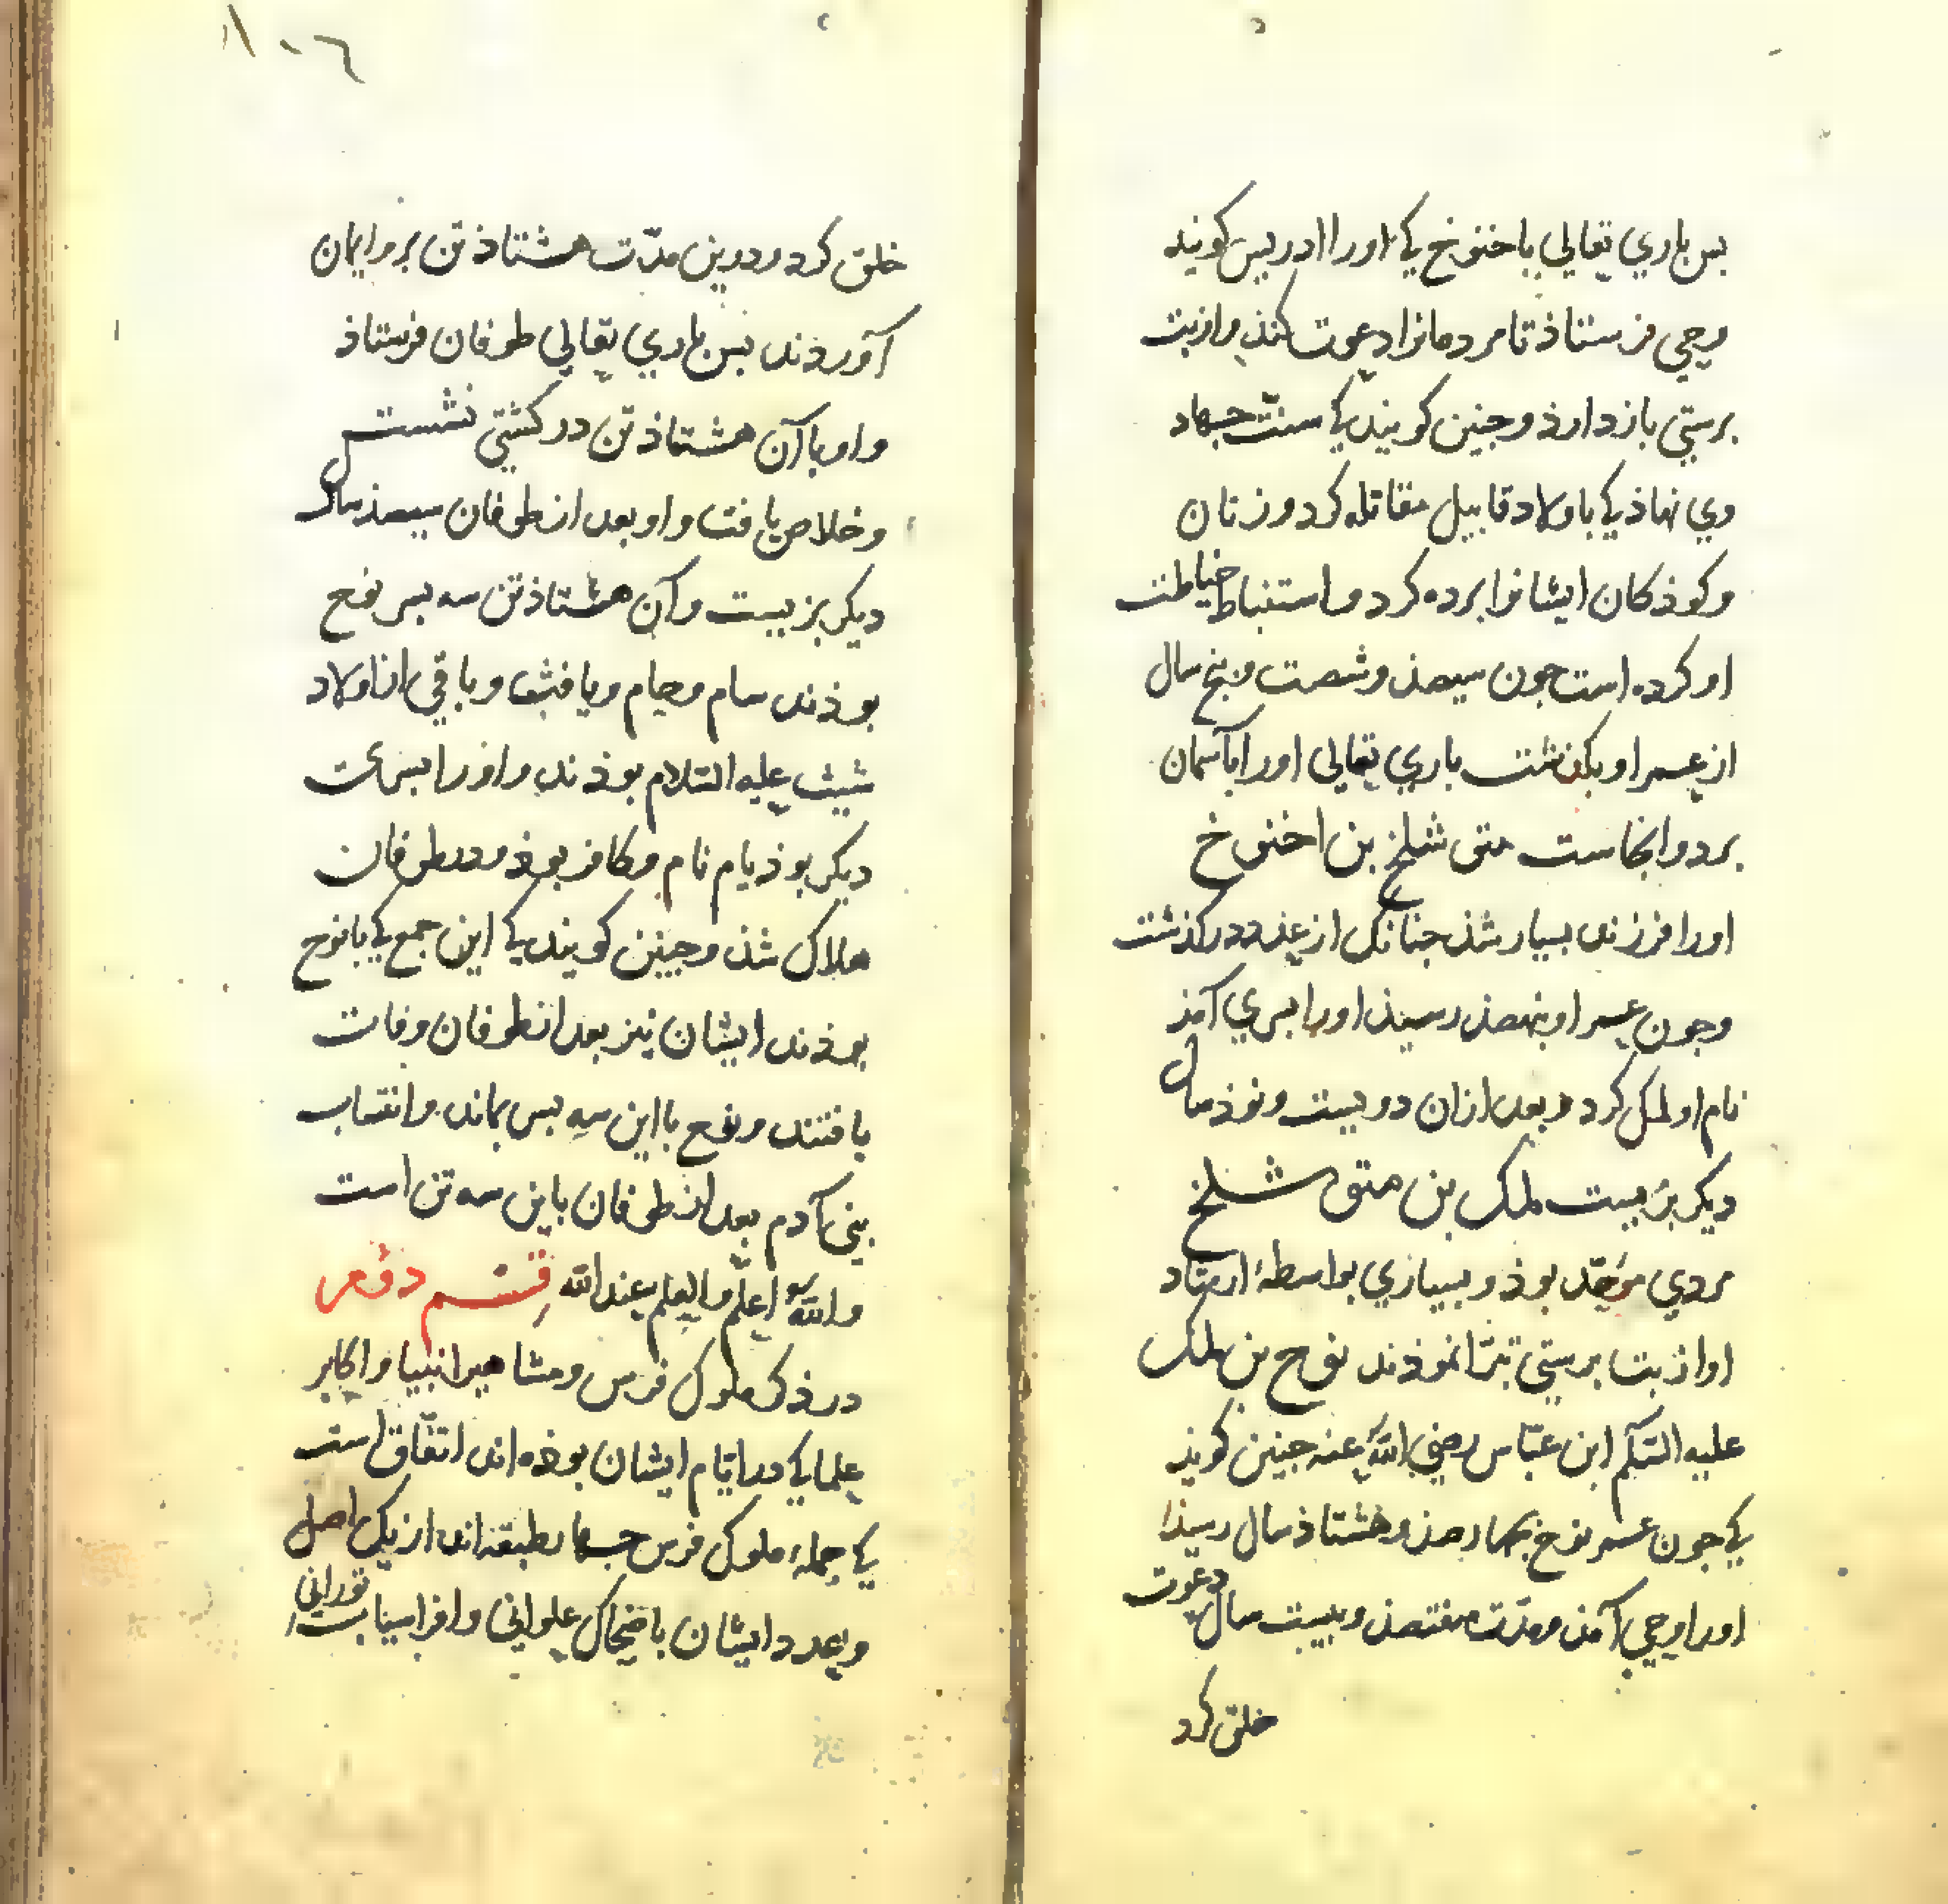 بس باري تعالي باخنوخ كي اورا ادريس كويند
وحي فرستاذ تا مردمانرا دعوت كند و از بت
برستي باز دارذ و جنين كويند كي سنت جهاد
وي نهاذ كي با ولاد قابيل مقاتله كرد و زنان
وكوذكان ايشانرا برده كرد و استنباط خياطت
او كرده است جون سيصذ و شصت و بنج سال
از عمر او بكذشت باري تعالي اورا بآسمان
برد و انجاست متوشلخ بن اخنوخ
اورا فرزندان بسيار شذ جنانك از عدد دركذشت
وجون عمر او بنهصذ رسيذ اورا بسري آمذ
نام او لمك كرد و بعد ازان دويست و نوذ سال
ديكر بزيست لمك بن متوشلخ
مردي موحد بوذ و بسياري بواسطۀ ارشاد
او از بت برستي تبرا نموذند نوح بن لمك
عليه السلم ابن عباس رضي الله عنه جنين كويذ
كي جون عمر نوح بجهارصذ و هشتاذ سال رسيذ
اورا وحي آمذ و مدت نهصذ و بيست سال دعوت
خلق كرد
١٠٦
خلق كرد و درين مدت هشتاذ تن برو ايمان
آوردند بس باري تعالي طوفان فرستاذ
و او با آن هشتاذ تن در كشتي نشست
و خلاص يافت و او بعد از طوفان سيصذ سال
ديكر بزيست و آن هشتاذ تن سه بسر نوح
بوذند سام و حام و يافث و باقي از اولاد
شيث عليه السلام بوذند و اورا بسري
ديكر بوذ يام نام و كافر بوذ و در طوفان
هلاك شذ و جنين كويند كي اين جمع كي با نوح
بوذند ايشان نيز بعد از طوفان وفات
يافتند و نوح با اين سه بسر بماند و انتساب
بني آدم بعد از طوفان باين سه تن است
والله اعلم والعلم عند الله قسم دوم
در ذكر ملوك فرس و مشاهير انبيا و اكابر
علما كي در ايام ايشان بوذه اند اتفاق است
كي جملۀ ملوك فرس جهار طبقه اند از يك اصل
و بعدد ايشان با ضحاك علواني و افراسياب توراني